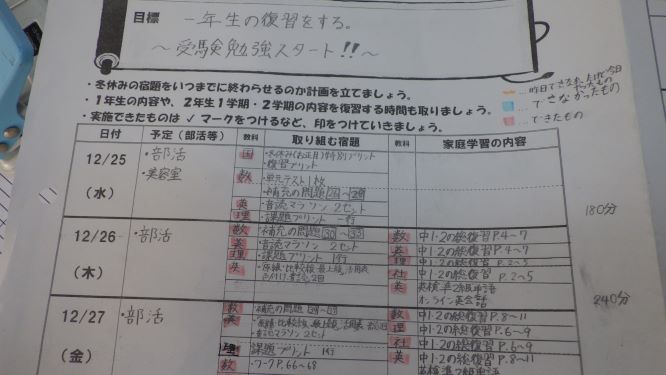 目標 一年生の復習をする。
～受験勉強スタート!!～
・冬休みの宿題をいつまでに終わらせるのか計画を立てましょう。
・1年生の内容や、2年生1学期・2学期の内容を復習する時間も取りましょう。
・実施できたものは ✓ マークをつけるなど、印をつけていきましょう。
…できなかったもの
…できたもの
日付 予定（部活等） 教科 取り組む宿題 教科 家庭学習の内容
12/25
（水）
・部活
・美容室
国 ・冬休み(お正月)特別プリント
・復習プリント
数 ・単元テスト1枚
・補充の問題
英 ・音読マラソン 2セット
理 ・課題プリント 一行
180分
12/26
（木）
・部活
数 ・補充の問題 30～33
英 ・音読マラソン 2セット
理 ・課題プリント 1行
英 ・原級・比較級・最上級
数 中1・2の総復習 P.4～7
英 中1・2の総復習 P.4～7
理 中1・2の総復習 P.2～5
社 中1・2の総復習 P.2～5
英 英検準2級単語
オンライン英会話
240分
12/27
（金）
・部活
数 補充の問題
英
・音読マラソン 2セット
理 課題プリント 1行
数 ・ワークP.66～68
数 中1・2の総復習P.8～11
理 中1・2の総復習 P.6～9
社 中1・2の総復習 P.6～9
英 中1・2の総復習 P.8～11
英検準2級単語